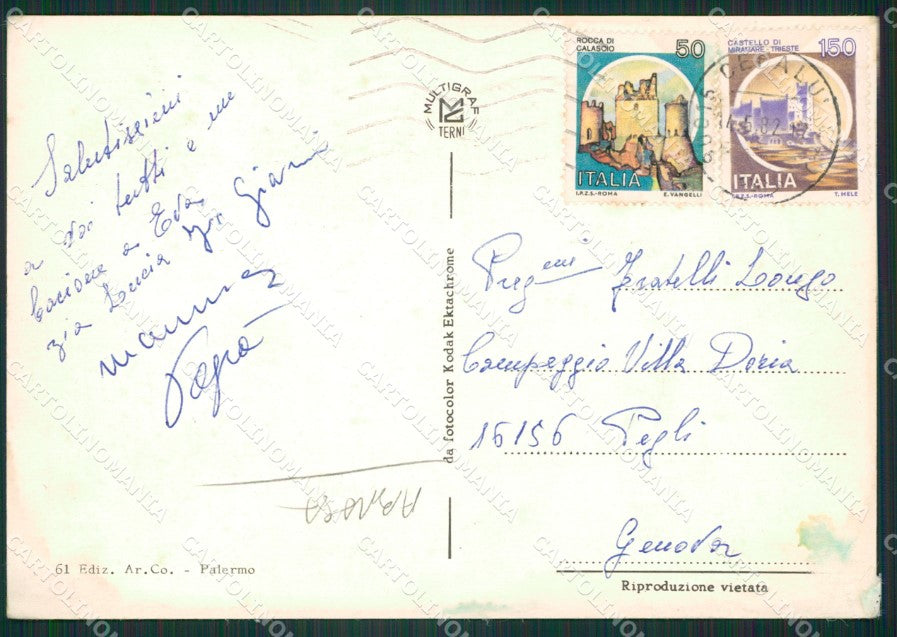 Salutissimi
a voi tutti e un
bacione a Eda
zia Lucia zio Gianni
mamma
Papà
61 Ediz. Ar.Co. - Palermo
MULTIGRAF
TERNI
da fotocolor Kodak Ektachrome
ROCCA DI
CALASCIO
50
ITALIA
I.P.Z.S.-ROMA E. VANGELLI
CASTELLO DI
MIRAMARE - TRIESTE
150
ITALIA
I.P.Z.S.-ROMA T. MELE
CEFALU'
Preg.mi Fratelli Longo
Campeggio Villa Doria
16156 Pegli
Genova
Riproduzione vietata
CARTOLINOMANIA